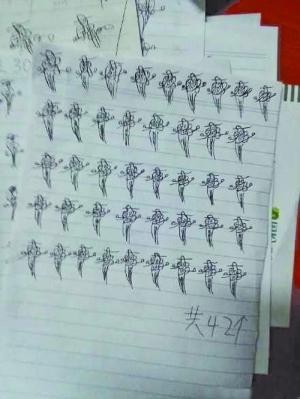 共42个